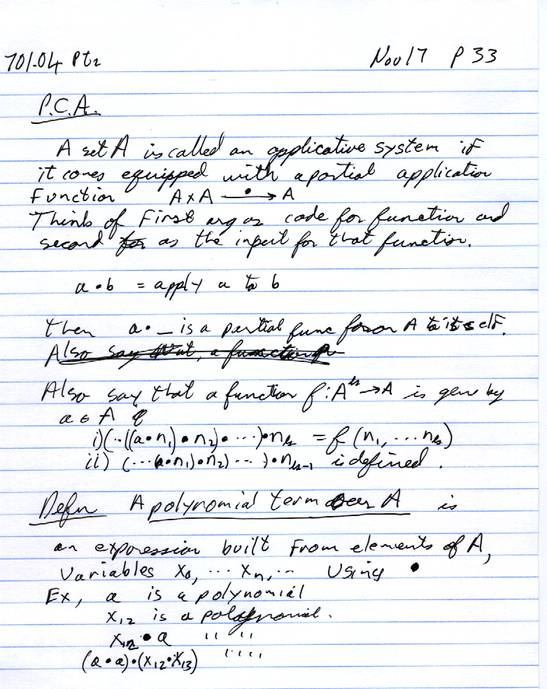 701.04 Pt2 Nov 17 P 33
P.C.A.
A set A is called an applicative system if
it comes equipped with a partial application
Function A x A —•→ A
Think of First arg as code for function and
second for as the input for that function.
a • b = apply a to b
then a • _ is a partial func from A to itself.
Also say that, a function
Also say that a function f: Aᵏ → A is gene by
a ∈ A if
i) (··((a•n₁)•n₂)•···)•nₖ = f(n₁, ... nₖ)
ii) (···(a•n₁)•n₂) ··· )•nₖ₋₁ is defined.
Defn A polynomial term over A is
an expression built From elements of A,
Variables x₀, ··· xₙ, ·· Using •
Ex, a is a polynomial
x₁₂ is a polynomial.
x₁₂ • a " " " "
(a • a) • (x₁₂ • x₁₃) " " " "